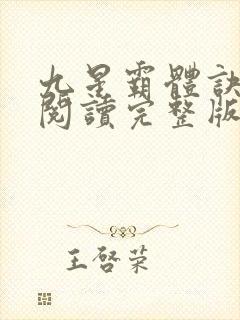 九星霸體訣
閱讀完整版
王啓荣